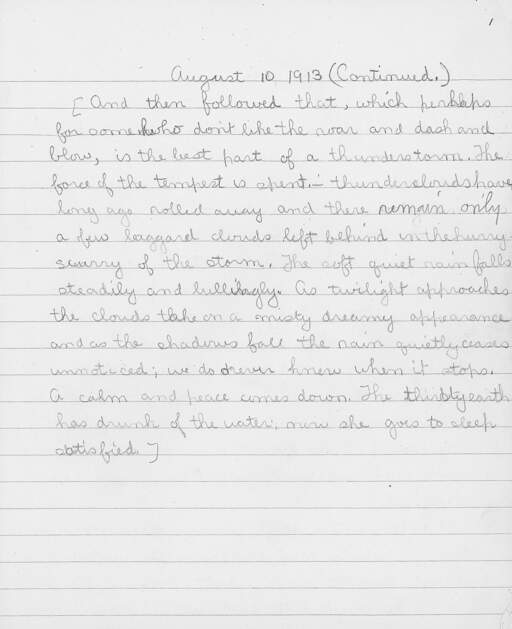 1
August 10 1913 (Continued.)
[And then followed that, which perhaps
for some who don't like the roar and dash and
blow, is the best part of a thunderstorm. The
force of the tempest is spent. – thunderclouds have
long ago rolled away and there remain only
a few laggard clouds left behind in the hurry-
scurry of the storm. The soft quiet rain falls
steadily and lullingly. As twilight approaches
the clouds take on a misty dreamy appearance
and as the shadows fall the rain quietly ceases
unnoticed; we do never know when it stops.
A calm and peace comes down. The thirsty earth
has drunk of the water, now she goes to sleep
satisfied.]